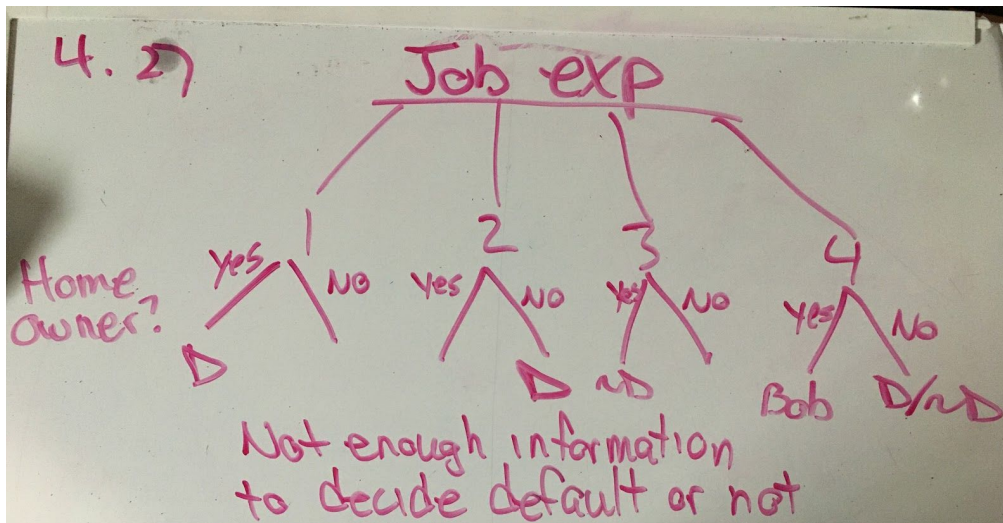 4. 27
Job exp
1 2 3 4
Home owner?
Yes No Yes No Yes No Yes No
D D ~D Bob D/~D
Not enough information
to decide default or not